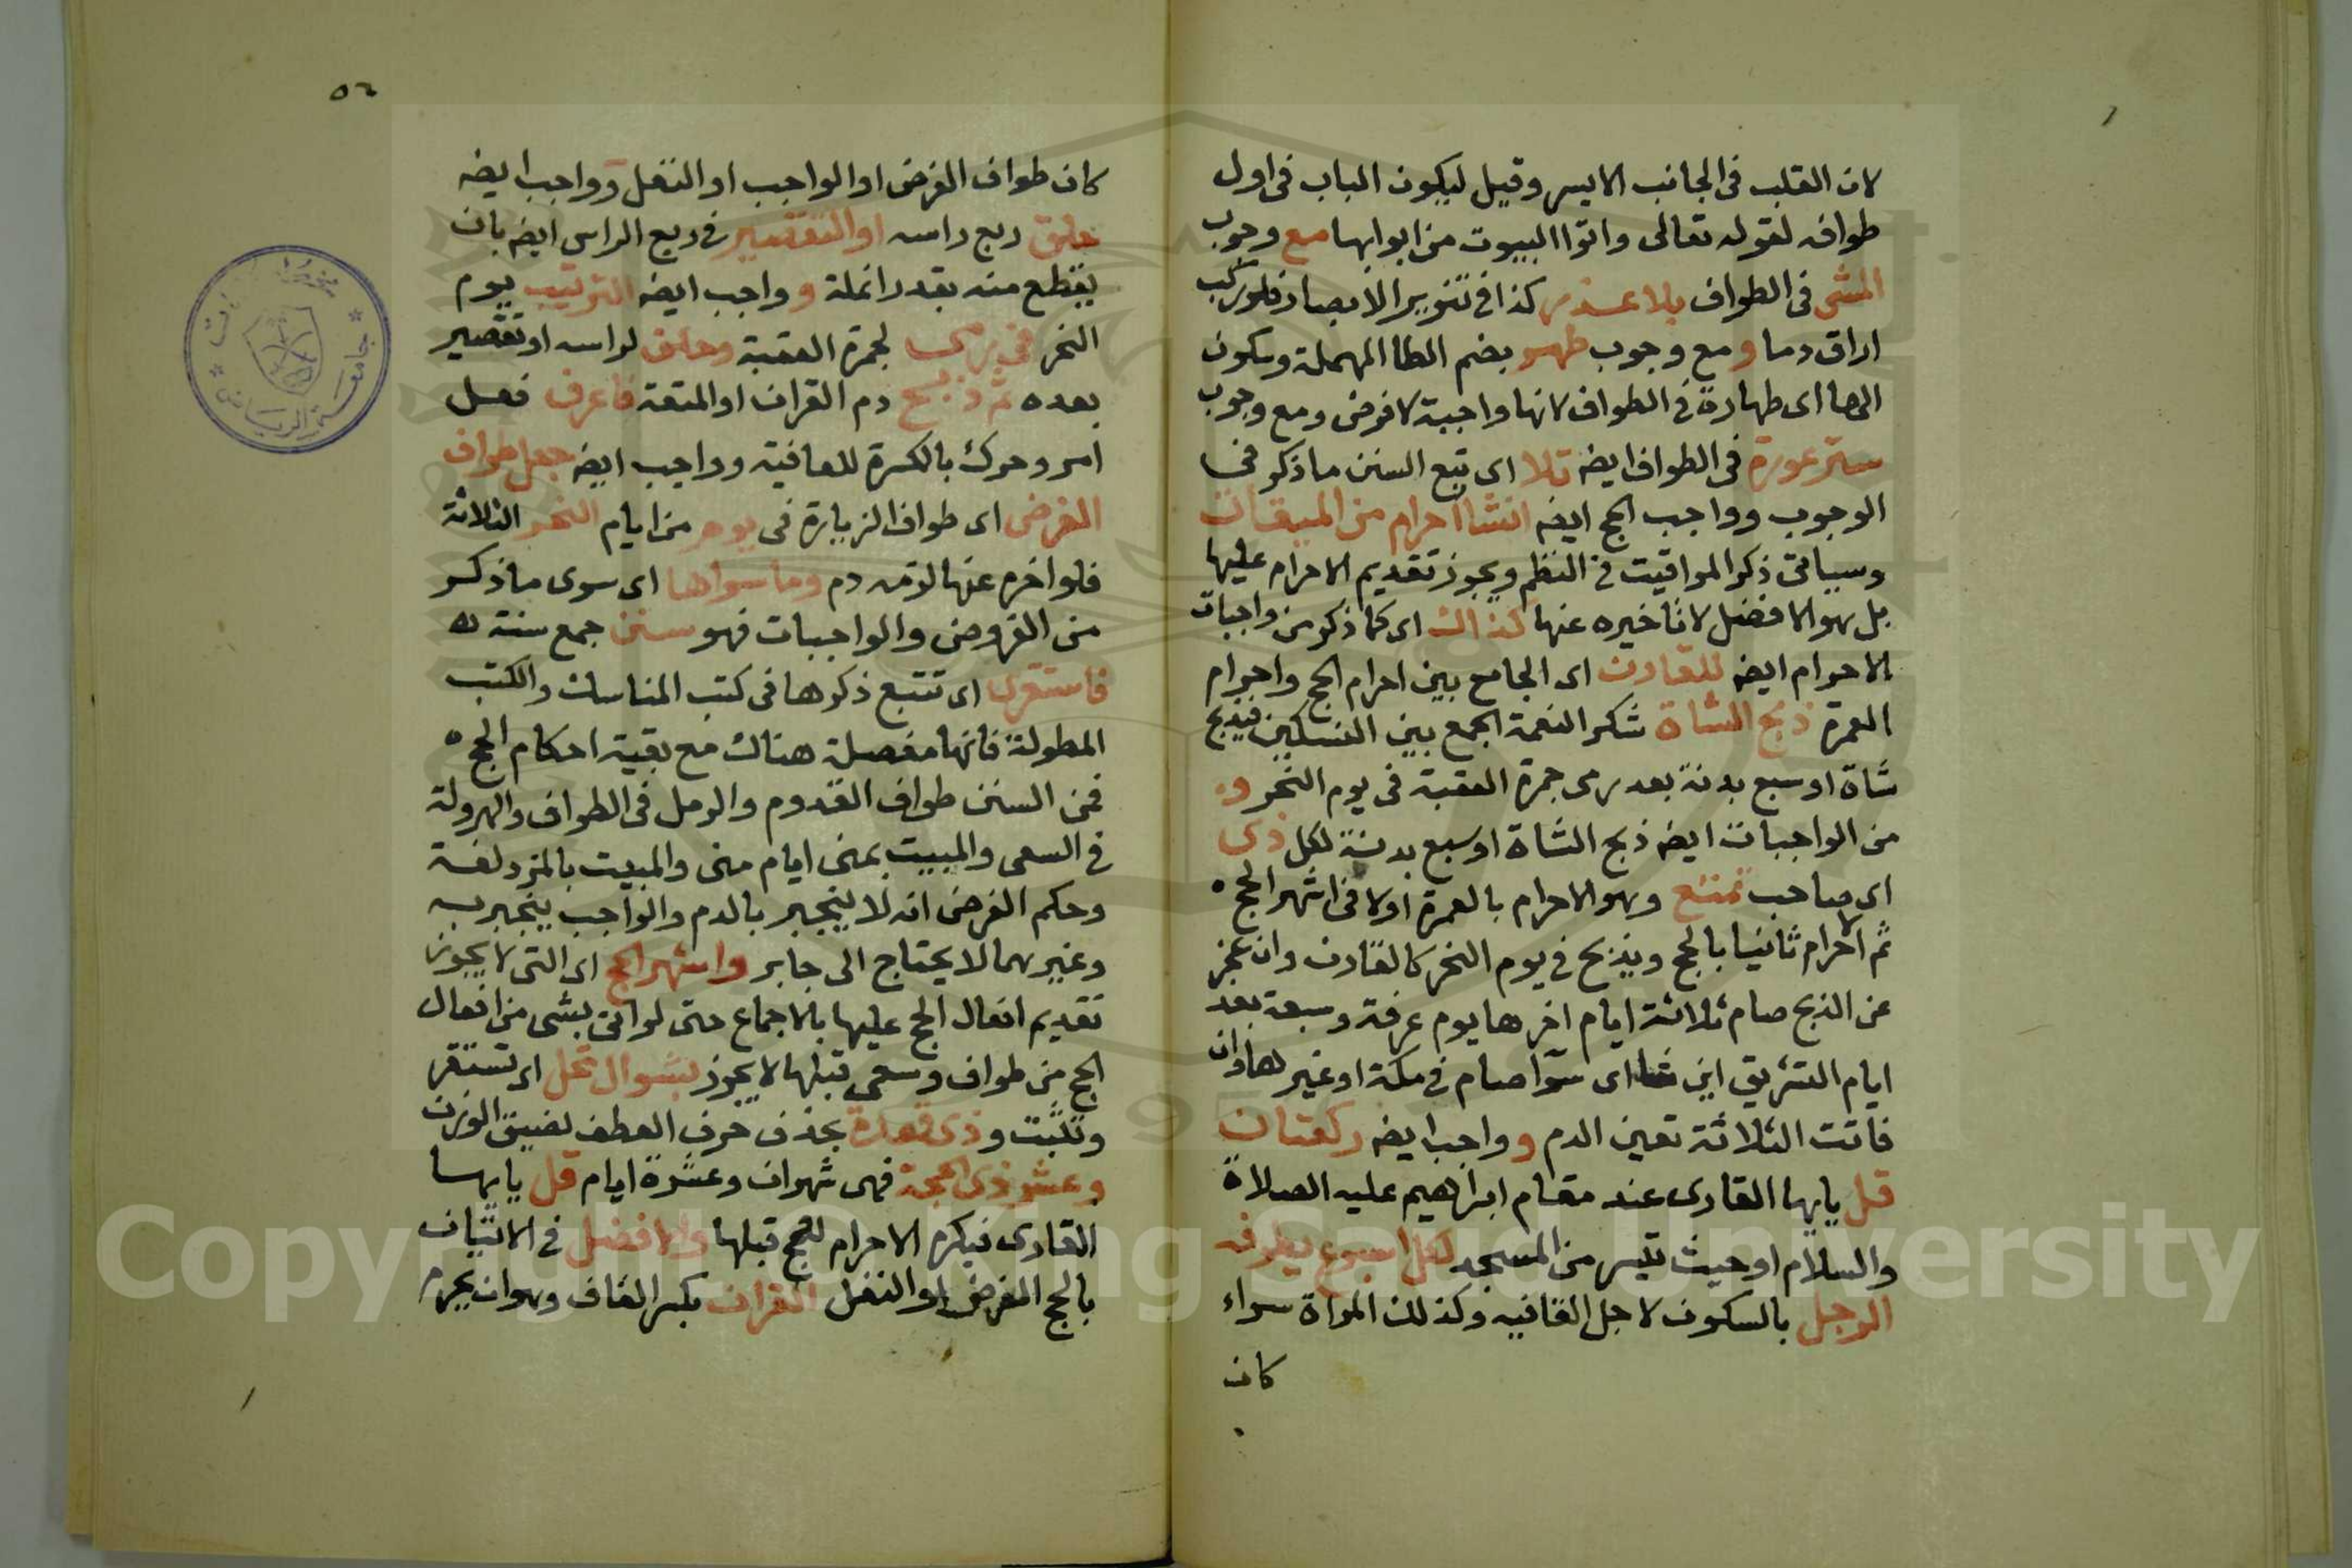 لان القلب فى الجانب الايسر وقيل ليكون الباب فى اول
طوافه لقوله تعالى واتوا البيوت من ابوابها مع وجوب
المشى فى الطواف بلا عذر كذا فى تنوير الابصار فلو ركب
اراق دما و مع وجوب طهر بضم الطا المهملة وسكون
الها اى طهارة فى الطواف لانها واجبة لا فرض ومع وجوب
ستر عورة فى الطواف ايضه تلا اى تبع السنن ما ذكر فى
الوجوب وواجب الحج ايضه انشا احرام من الميقات
وسياتى ذكر المواقيت فى النظم ويجوز تقديم الاحرام عليها
بل هو الافضل لا تاخيره عنها كذاك اى كما ذكر من واجبات
الاحرام ايضه للقارن اى الجامع بين احرام الحج واحرام
العمرة ذبح الشاة شكر النعمة الجمع بين النسكين فيذبح
شاة او سبع بدنة بعد رمى جمرة العقبة فى يوم النحر و
من الواجبات ايضه ذبح الشاة او سبع بدنة لكل ذى
اى صاحب تمتع وهو الاحرام بالعمرة اولا فى اشهر الحج ه
ثم الاحرام ثانيا بالحج ويذبح فى يوم النحر كالقارن وان عجز
عن الذبح صام ثلاثة ايام اخرها يوم عرفة وسبعة بعد
ايام التشريق اين شا اى سوا صام فى مكة او غيرها وان
فاتت الثلاثة تعين الدم و واجب ايضه ركعتان
قل يا يها القارى عند مقام ابراهيم عليه الصلاة
والسلام او حيث تيسر من المسجد لكل اسبوع يطوفه
الرجل بالسكون لاجل القافيه وكذلك المراة سواء
كان
٥٦
كان طواف الفرض او الواجب او النفل وواجب ايضه
حلق ربع راسه او التقصير فى ربع الراس ايضه بان
يقطع منه بقدر انملة و واجب ايضه الترتيب يوم
النحر فى رمى لجمرة العقبة وحلق لراسه او تقصير
بعده ثم ذبح دم القران او المتعة فاعرف فعل
امر وحرك بالكسرة للقافية وواجب ايضه جعل طواف
الفرض اى طواف الزيارة فى يوم من ايام النحر الثلاثة
فلو اخره عنها لزمه دم وما سواها اى سوى ما ذكر
من الفروض والواجبات فهو سنن جمع سنة ه
فاستقرى اى تتبع ذكرها فى كتب المناسك والكتب
المطولة فانها مفصلة هناك مع بقية احكام الحج ه
فمن السنن طواف القدوم والرمل فى الطواف والهرولة
فى السعى والمبيت بمنى ايام منى والمبيت بالمزدلفة
وحكم الفرض انه لا ينجبر بالدم والواجب ينجبر به
وغيرهما لا يحتاج الى جابر واشهر الحج اى التى لا يجوز
تقديم افعال الحج عليها بالاجماع حتى لو اتى بشى من افعال
الحج من طواف وسعى قبلها لا يجوز بشوال تحل اى تستقر
وتثبت و ذى قعدة بحذف حرف العطف لضيق الوزن
وعشر ذى الحجة فهى شهران وعشرة ايام قل يا يها
القارى فيكره الاحرام للحج قبلها والافضل فى الاتيان
بالحج الفرض او النفل القران بكسر القاف وهو ان يحرم
جامعة الرياض
Copyright © King Saud University